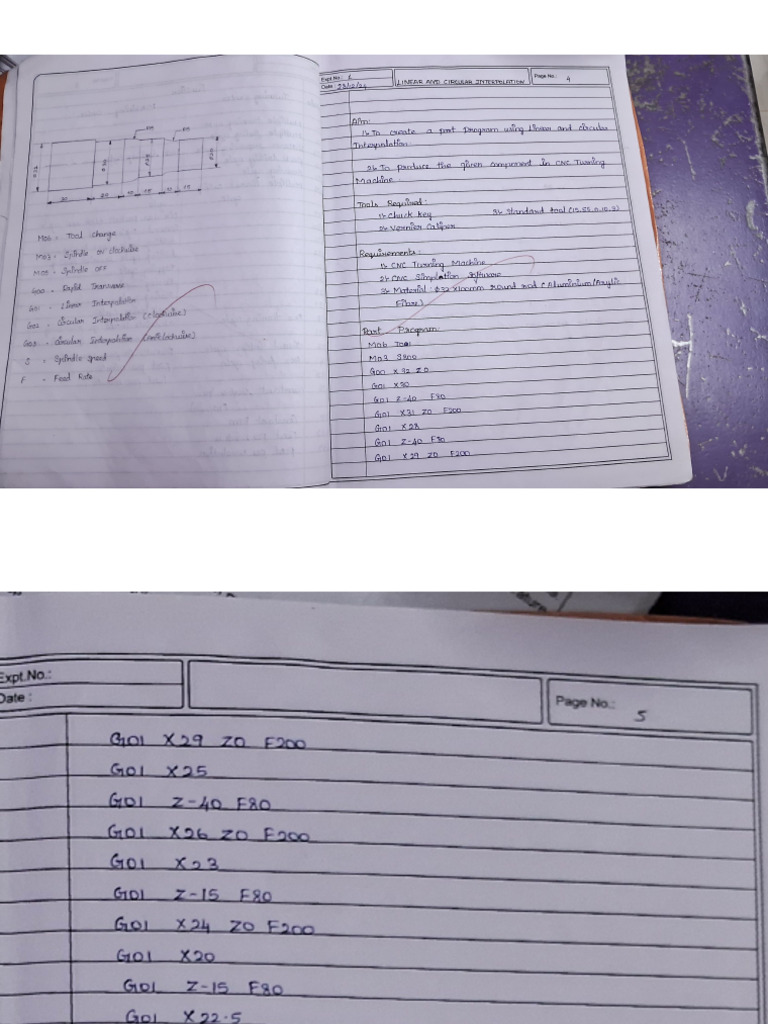 M06 - Tool change
M03 - Spindle on clockwise
M05 - Spindle OFF
G00 - Rapid Transverse
G01 - Linear Interpolation
G02 - Circular Interpolation (clockwise)
G03 - Circular Interpolation
S - Spindle Speed
F - Feed Rate
Expt.No.: 2
Date:
LINEAR AND CIRCULAR INTERPOLATION
Page No.: 4
Aim:
To create a part program using linear and circular
Interpolation.
To produce the given component in CNC Turning
Machine
Tools Required:
Chuck key
Standard tool
Vernier Caliper
Requirements:
CNC Turning Machine
CNC Software
Material: round rod (Aluminium/
Fibre)
Part Program:
M06
M03 S800
G00 X32 Z0
G01 X30
G01 Z-40 F80
G01 X31 Z0 F200
G01 X28
G01 Z-40 F80
G01 X29 Z0 F200
Expt.No.:
Date :
Page No.: 5
G01 X29 Z0 F200
G01 X25
G01 Z-40 F80
G01 X26 Z0 F200
G01 X23
G01 Z-15 F80
G01 X24 Z0 F200
G01 X20
G01 Z-15 F80
G01 X22.5